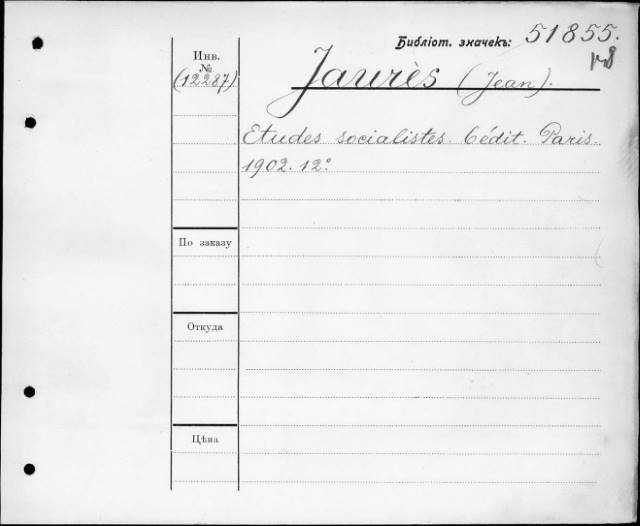 Библіот. значекъ: 51855.
Инв.
№
(12287)
Jaurès (Jean).
Etudes socialistes. 6 édit. Paris.
1902. 12°
По заказу
Откуда
Цѣна